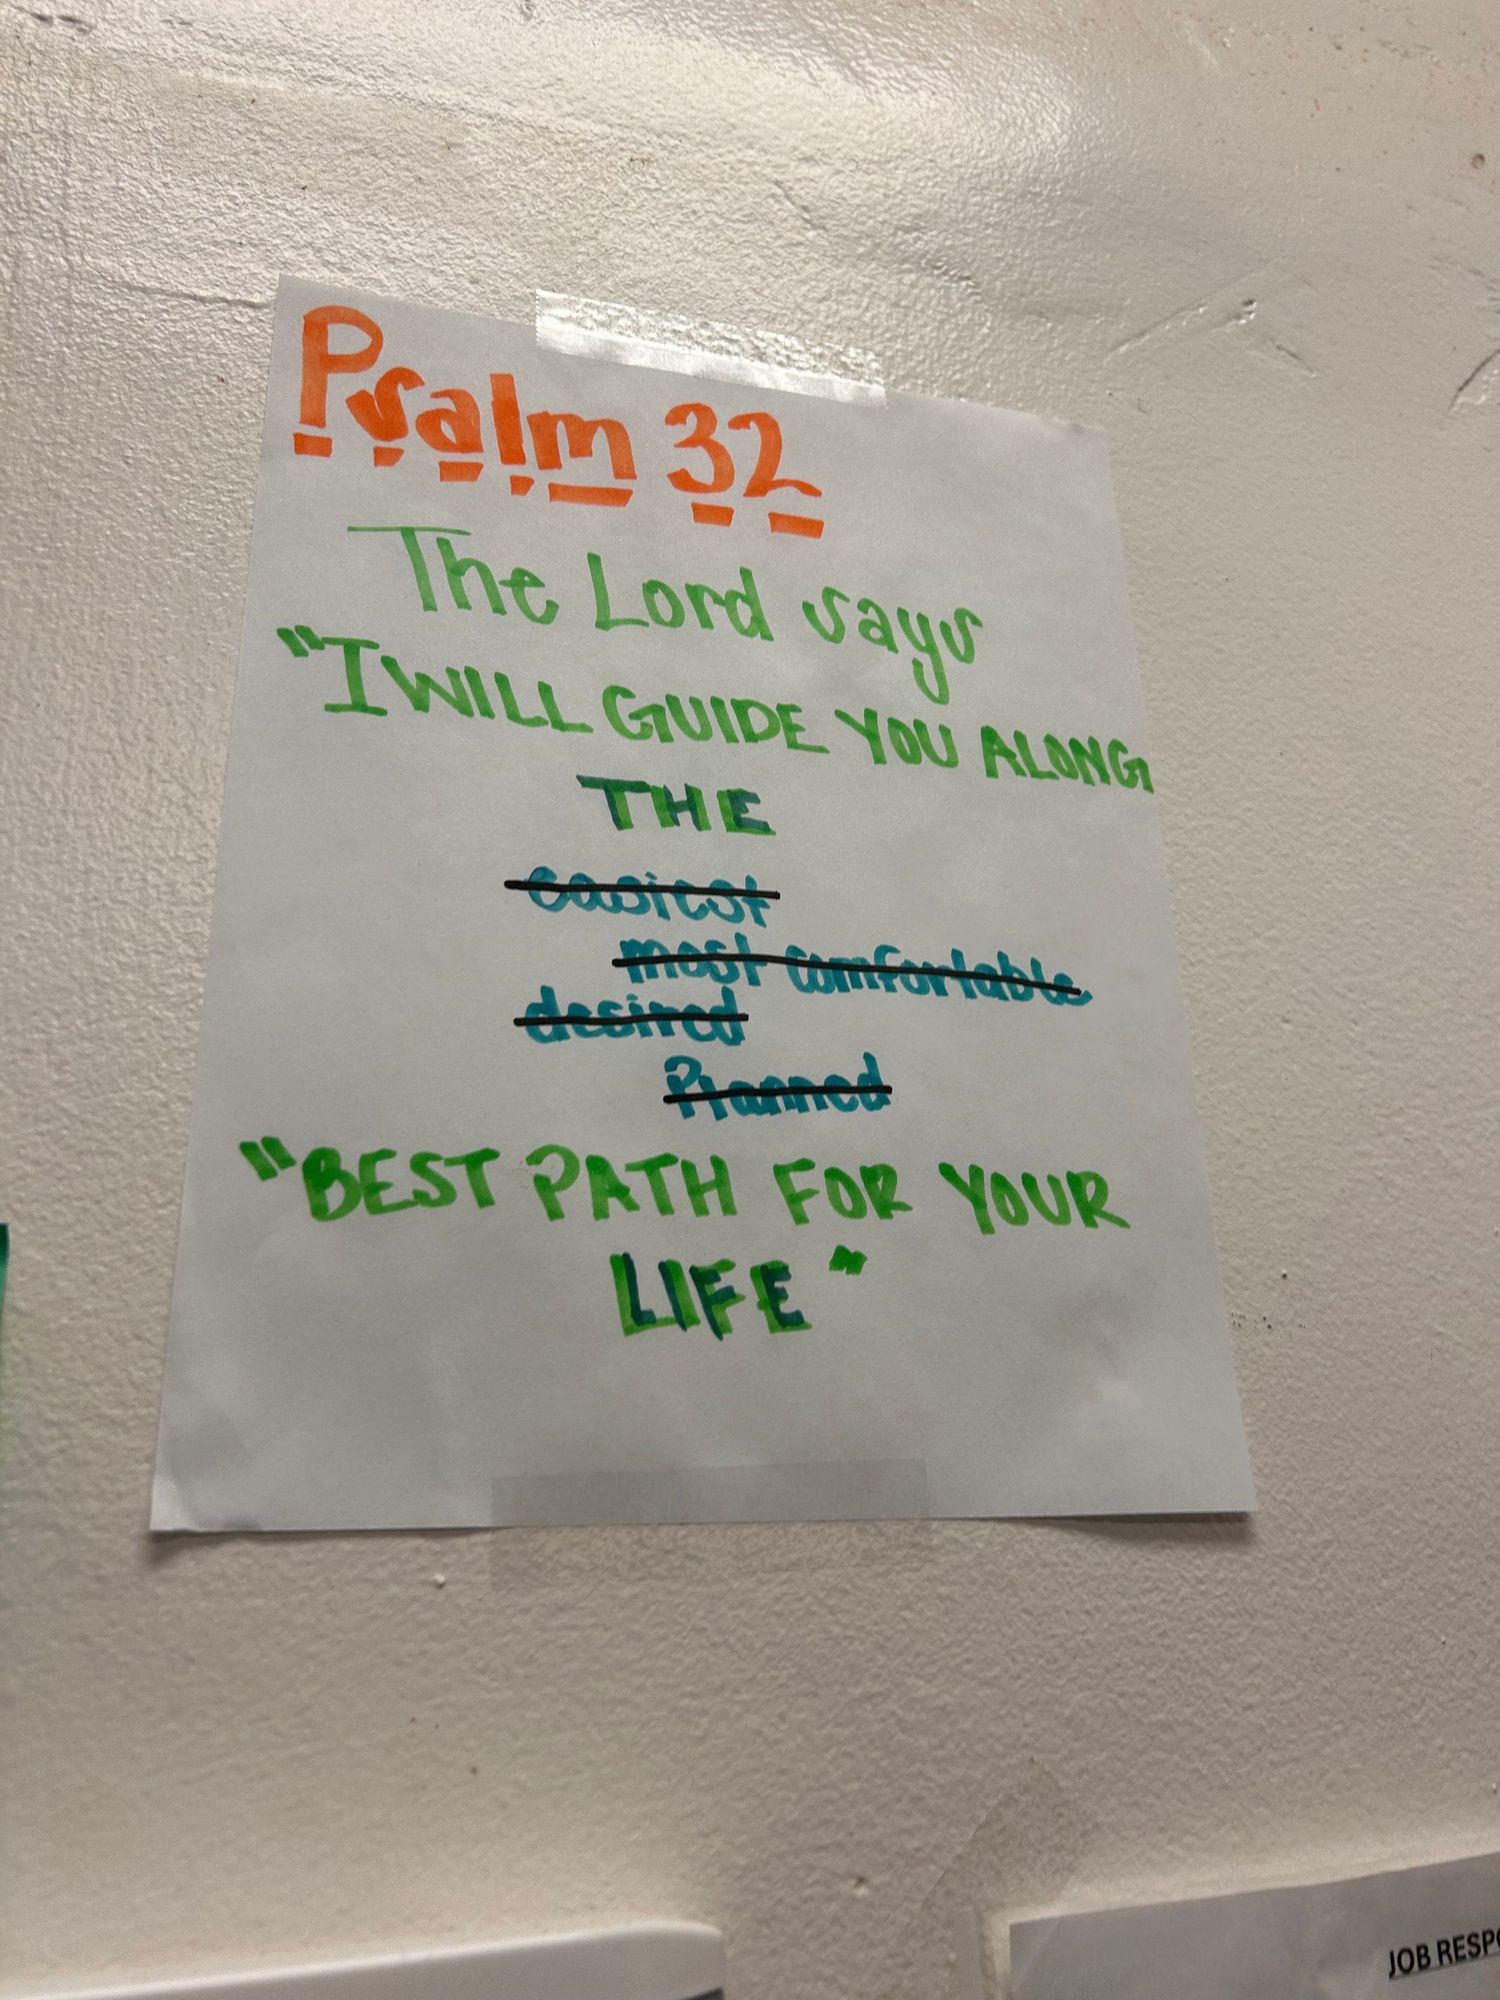 Psalm 32
The Lord says
"I WILL GUIDE YOU ALONG
THE
easiest
most comfortable
desired
Planned
"BEST PATH FOR YOUR
LIFE"